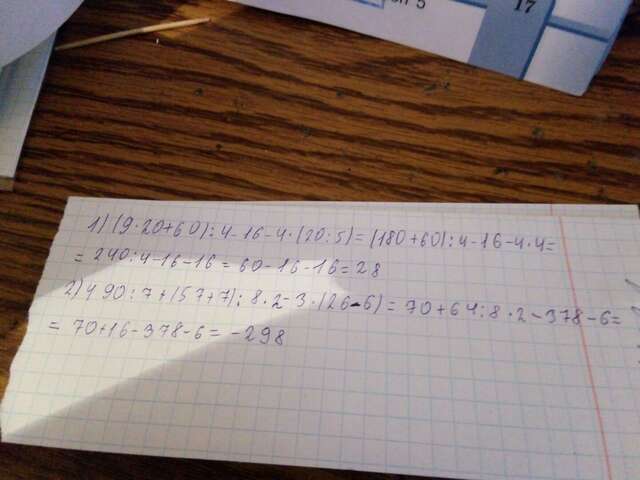 эп 5
17
1) (9·20+60):4-16-4·(20:5)=(180+60):4-16-4·4=
= 240:4-16-16=60-16-16=28
2) 490:7+(57+7):8·2-3·(26-6)=70+64:8·2-378-6=
= 70+16-378-6=-298